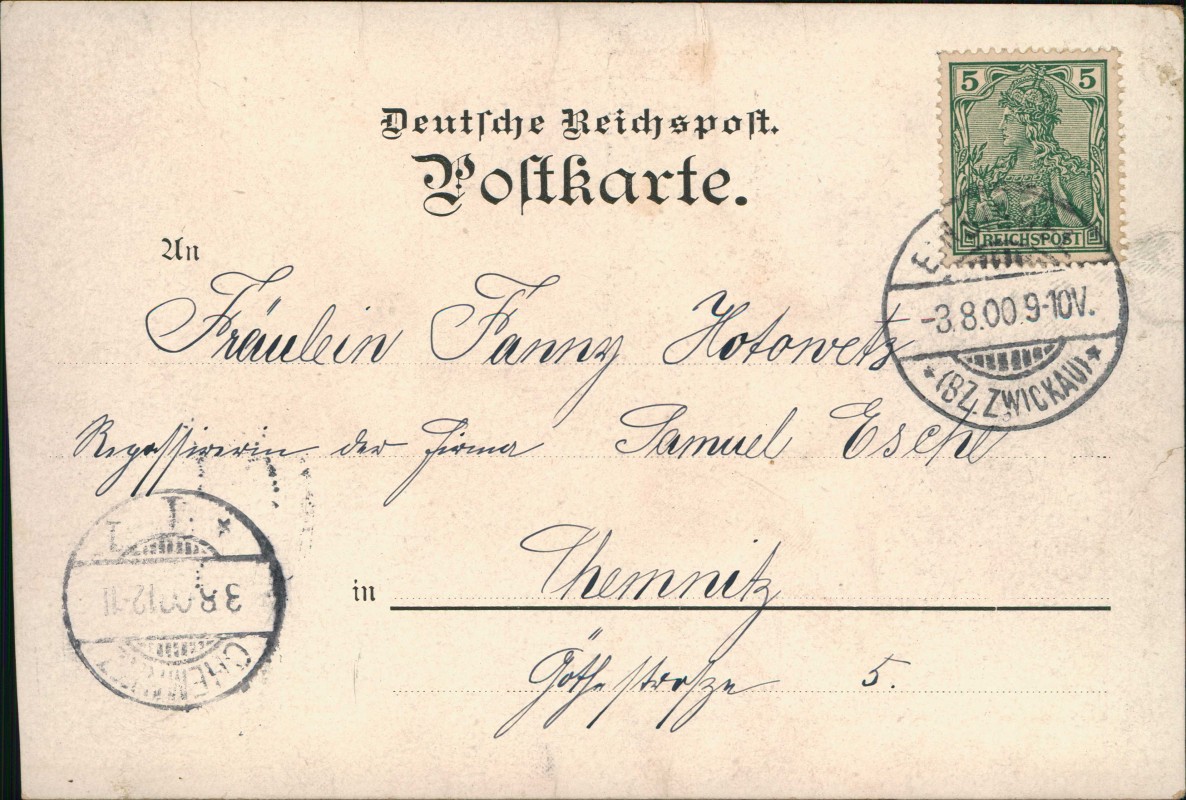 5 5
REICHSPOST
Deutsche Reichspost.
Postkarte.
An
-3.8.00.9-10V.
* (BZ. ZWICKAU) *
Fräulein Fanny Hotowetz
Repassirerin der Firma Samuel Esche
in Chemnitz
Göthestrasze 5.
3.8.00 12-1
CHEMNITZ